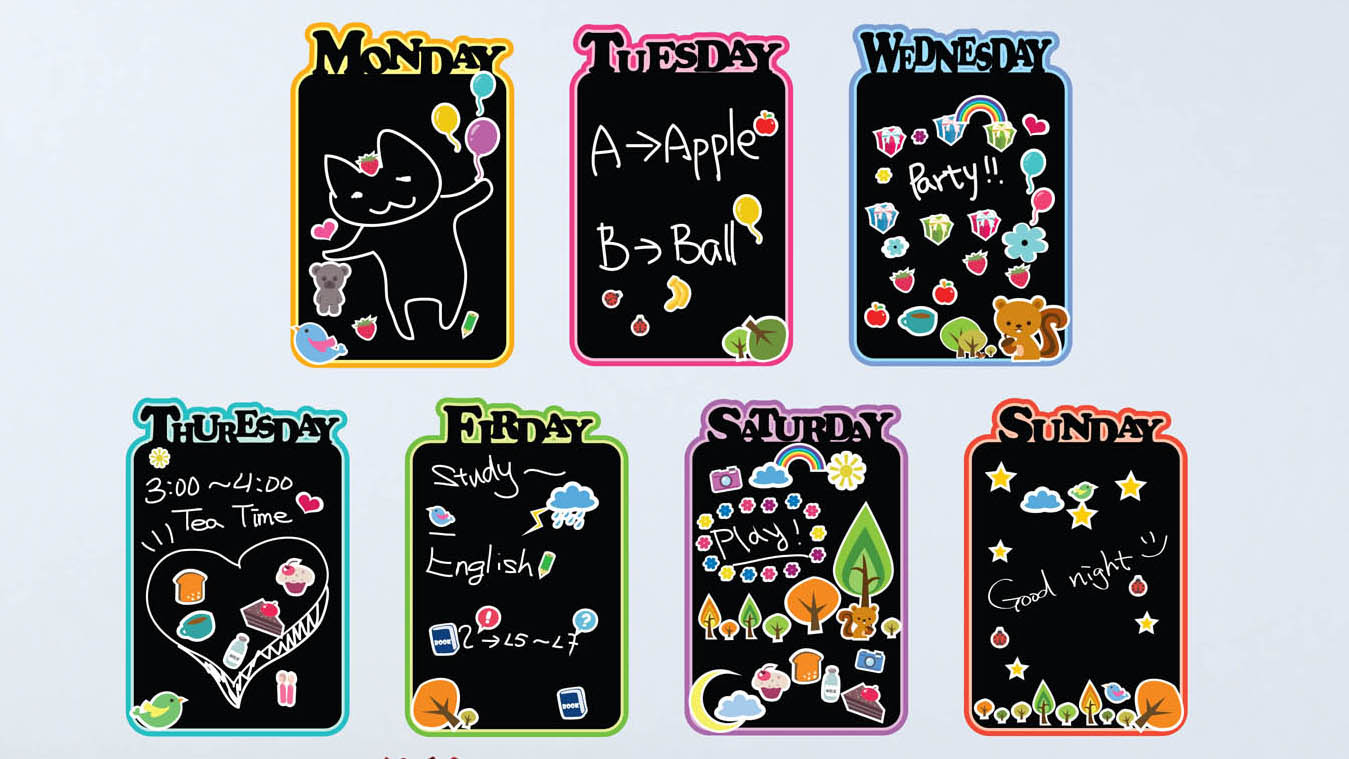 MONDAY
TUESDAY
A→Apple
B→Ball
WEDNESDAY
Party!!
THURESDAY
3:00 ~4:00
Tea Time
MILK
FIRDAY
Study ~
English
BOOK 2 →L5~L7
!
?
BOOK
SATURDAY
Play!
MILK
SUNDAY
Good night